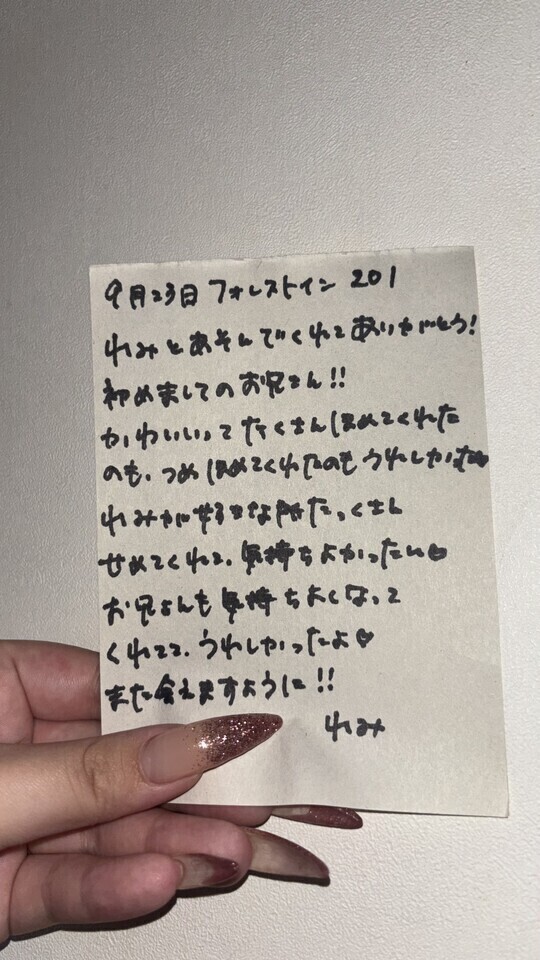 9月23日 フォレストイン 201
れみとあそんでくれてありがとう!
初めましてのお兄さん!!
かわいいってたくさんほめてくれた
のも、つめほめてくれたのもうれしかった♥
れみが好きな所たっくさん
せめてくれて、気持ちよかったい♥
お兄さんも気持ちよくなって
くれてて、うれしかったよ♥
また会えますように!!
れみ